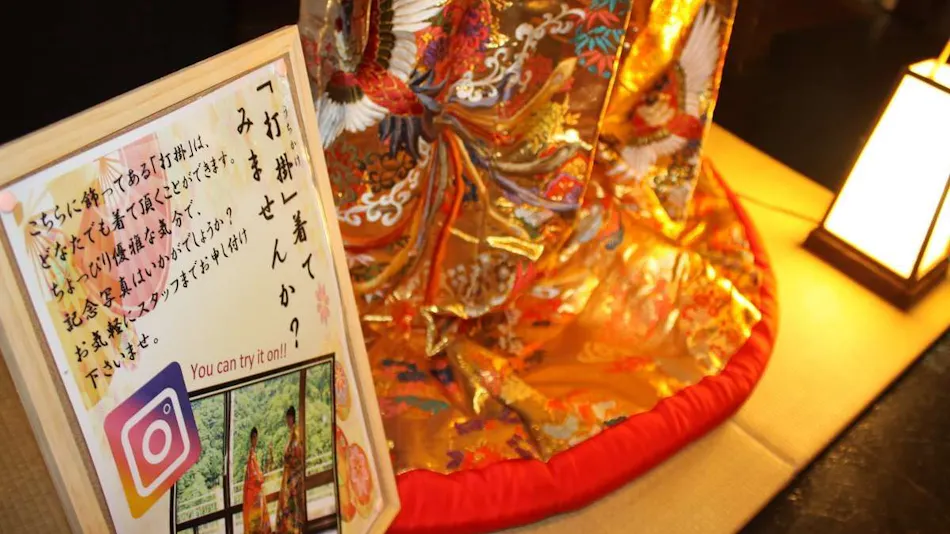 「打掛」着て
みませんか？
うちかけ
こちらに飾ってある「打掛」は、
どなたでも着て頂くことができます。
ちょっぴり優雅な気分で、
記念写真はいかがでしょうか？
お気軽にスタッフまでお申し付け
下さいませ。
You can try it on!!